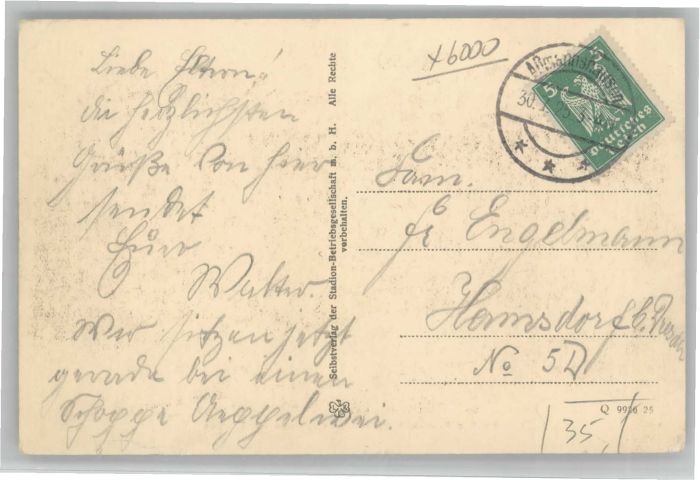 Liebe Eltern!
die herzlichsten
Grüße von hier
sendet
Euer
Walter.
Wir sitzen jetzt
gerade bei einem
Schoppe Aeppelwei.
Selbstverlag der Stadion-Betriebsgesellschaft m. b. H. Alle Rechte
vorbehalten.
+6000
30.
5 5
Deutsches
Reich
Fam.
Engelmann
b. Dresden
No 5D
Q 9926 25
35,